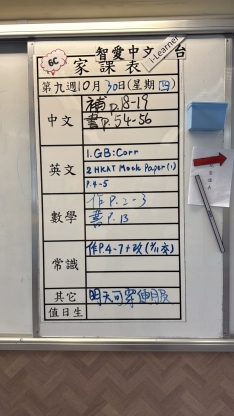 智愛中文 台
i-Learner
6C
家課表
第九週10月30日(星期四)
中文
補P.18-19
書P.54-56
英文
1.GB:Corr
2 HKAT Mock Paper(1)
P.4-5
數學
作P.2-3
書P.13
常識
作P.4-7+改(3/11交)
其它
明天可穿便服
值日生